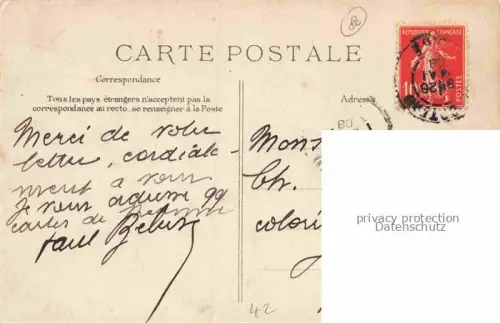 86
CARTE POSTALE
RÉPUBLIQUE FRANÇAISE
10
POSTES
Correspondance
Tous les pays étrangers n'acceptent pas la
correspondance au recto, se renseigner à la Poste
Adresse
08
Merci de votre
lettre, cordiale-
ment a vous
Je vous adresse 99
cartes de
Paul
Mons
Ch.
colori
privacy protection
Datenschutz
42